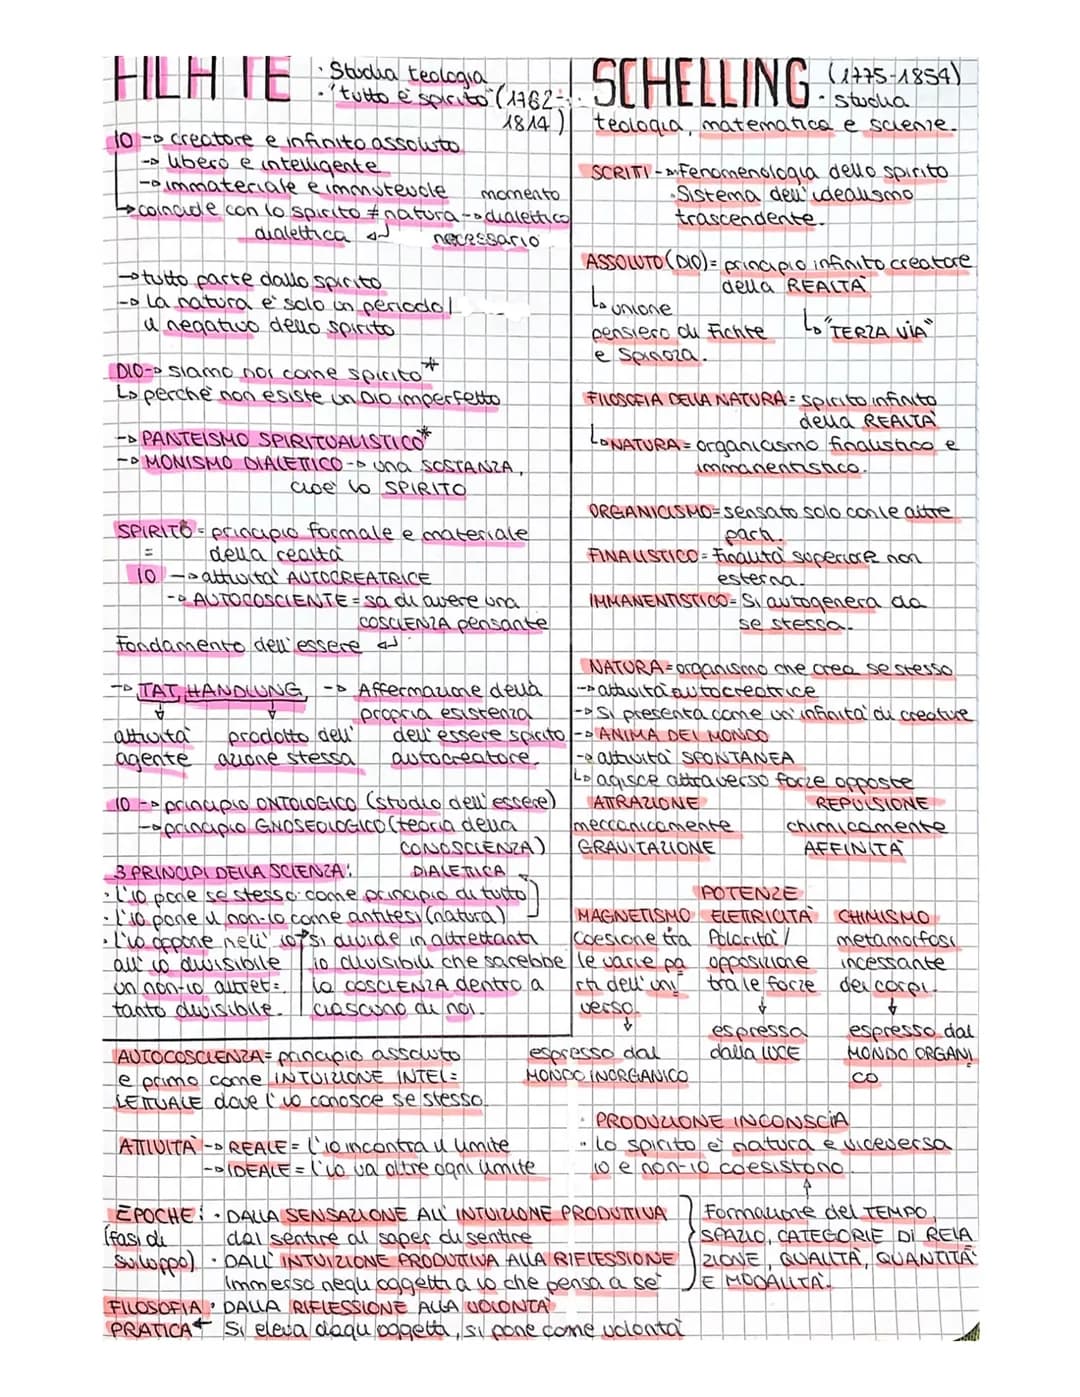 FICHTE
· Studia teologia
· "tutto è spirito" (1762-
1814)
IO -> creatore e infinito assoluto
-> libero e intelligente
-> immateriale e immutevole
-> coincide con lo spirito ≠ natura -> momento
dialettico
necessario
dialettica
-> tutto parte dallo spirito
-> La natura è solo un periodo/
il negativo dello spirito
DIO -> siamo noi come spirito*
↳ perchè non esiste un DIO imperfetto
-> PANTEISMO SPIRITUALISTICO*
-> MONISMO DIALETTICO -> una SOSTANZA,
cioè lo SPIRITO
SPIRITO = principio formale e materiale
= della realtà
IO -> attività AUTOCREATRICE
-> AUTOCOSCIENTE = sa di avere una
COSCIENZA pensante
Fondamento dell'essere ↵
-> TAT HANDLUNG -> Affermazione della
propria esistenza
attività prodotto dell' dell'essere spirito
agente azione stessa autocreatore.
IO -> principio ONTOLOGICO (studio dell'essere)
-> principio GNOSEOLOGICO (teoria della
CONOSCIENZA)
3 PRINCIPI DELLA SCIENZA: DIALETICA
· L'io pone se stesso come principio di tutto
· l'io pone il non-io come antitesi (natura)
· L'io oppone nell' io
all' io divisibile
un non-io altret=
tanto divisibile.
si divide in altrettanti
io divisibili che sarebbe
la COSCIENZA dentro a
ciascuno di noi.
SCHELLING (1775-1854)
· studia
teologia, matematica e scienze.
SCRITI -> · Fenomenologia dello spirito
· Sistema dell'idealismo
trascendente.
ASSOLUTO (DIO) = principio infinito creatore
della REALTÀ
↳ unione
pensiero di Fichte
e Spinoza.
↳ "TERZA VIA"
FILOSOFIA DELLA NATURA = spirito infinito
della REALTÀ
↳ NATURA = organicismo finalistico e
immanentistico.
ORGANICISMO = sensato solo con le altre
parti.
FINALISTICO = Finalità superiore non
esterna.
IMMANENTISTICO = Si autogenera da
se stessa.
NATURA = organismo che crea se stesso
-> attività autocreatrice
-> Si presenta come un'infinità di creature
-> ANIMA DEL MONDO
-> attività SPONTANEA
↳ agisce attraverso forze opposte
ATRAZIONE REPULSIONE
meccanicamente chimicamente
GRAVITAZIONE AFFINITÀ
POTENZE
MAGNETISMO ELETRICITÀ CHIMISMO
Coesione tra Polarità/ metamorfosi
le varie pa opposizione incessante
rti dell'uni tra le forze dei corpi.
verso.
espresso dal
MONDO INORGANICO
espressa
dalla LUCE
espresso dal
MONDO ORGANI
CO
AUTOCOSCIENZA = principio assoluto
e primo come INTUIZIONE INTEL=
LETTUALE dove l'io conosce se stesso.
· PRODUZIONE INCONSCIA
· lo spirito è natura e viceversa
io e non-io coesistono.
ATTIVITÀ -> REALE = l'io incontra il limite
-> IDEALE = l'io va oltre ogni limite
EPOCHE: · DALLA SENSAZIONE ALL' INTUIZIONE PRODUTIVA
(fasi di dal sentire al saper di sentire
sviluppo) · DALL' INTUIZIONE PRODUTIVA ALLA RIFLESSIONE
immerso negli oggetti a io che pensa a se'
Formazione del TEMPO,
SPAZIO, CATEGORIE DI RELA
ZIONE, QUALITÀ, QUANTITÀ
E MODALITÀ.
FILOSOFIA · DALLA RIFLESSIONE ALLA VOLONTÀ
PRATICA ← Si eleva dagli oggetti, si pone come volontà